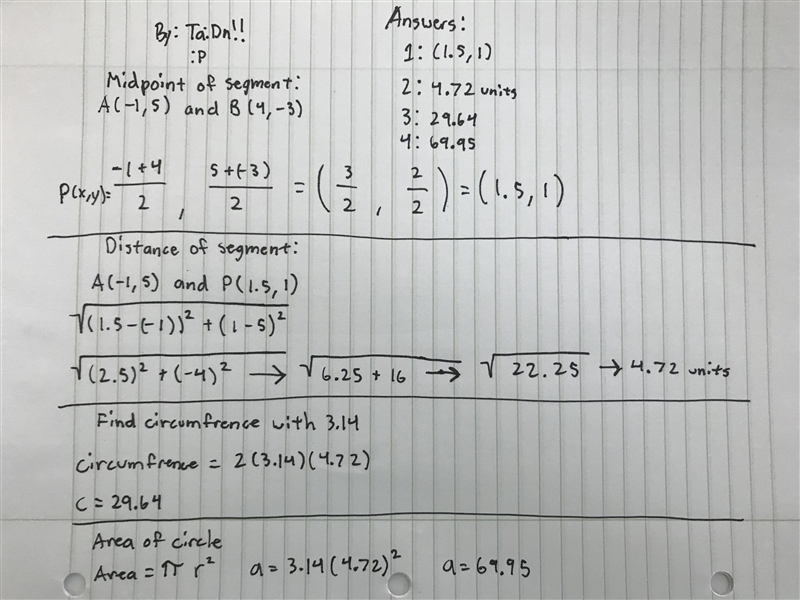 By: Ta.Dn!!
:P
Answers:
1: (1.5, 1)
2: 4.72 units
3: 29.64
4: 69.95
Midpoint of segment:
A(-1,5) and B(4,-3)
P(x,y)= -1+4/2 , 5+(-3)/2 = (3/2 , 2/2) = (1.5, 1)
Distance of segment:
A(-1,5) and P(1.5,1)
√(1.5-(-1))² + (1-5)²
√(2.5)² + (-4)² → √6.25 + 16 → √22.25 → 4.72 units
Find circumfrence with 3.14
circumfrence = 2(3.14)(4.72)
C = 29.64
Area of circle
Area = π r² a = 3.14(4.72)² a = 69.95